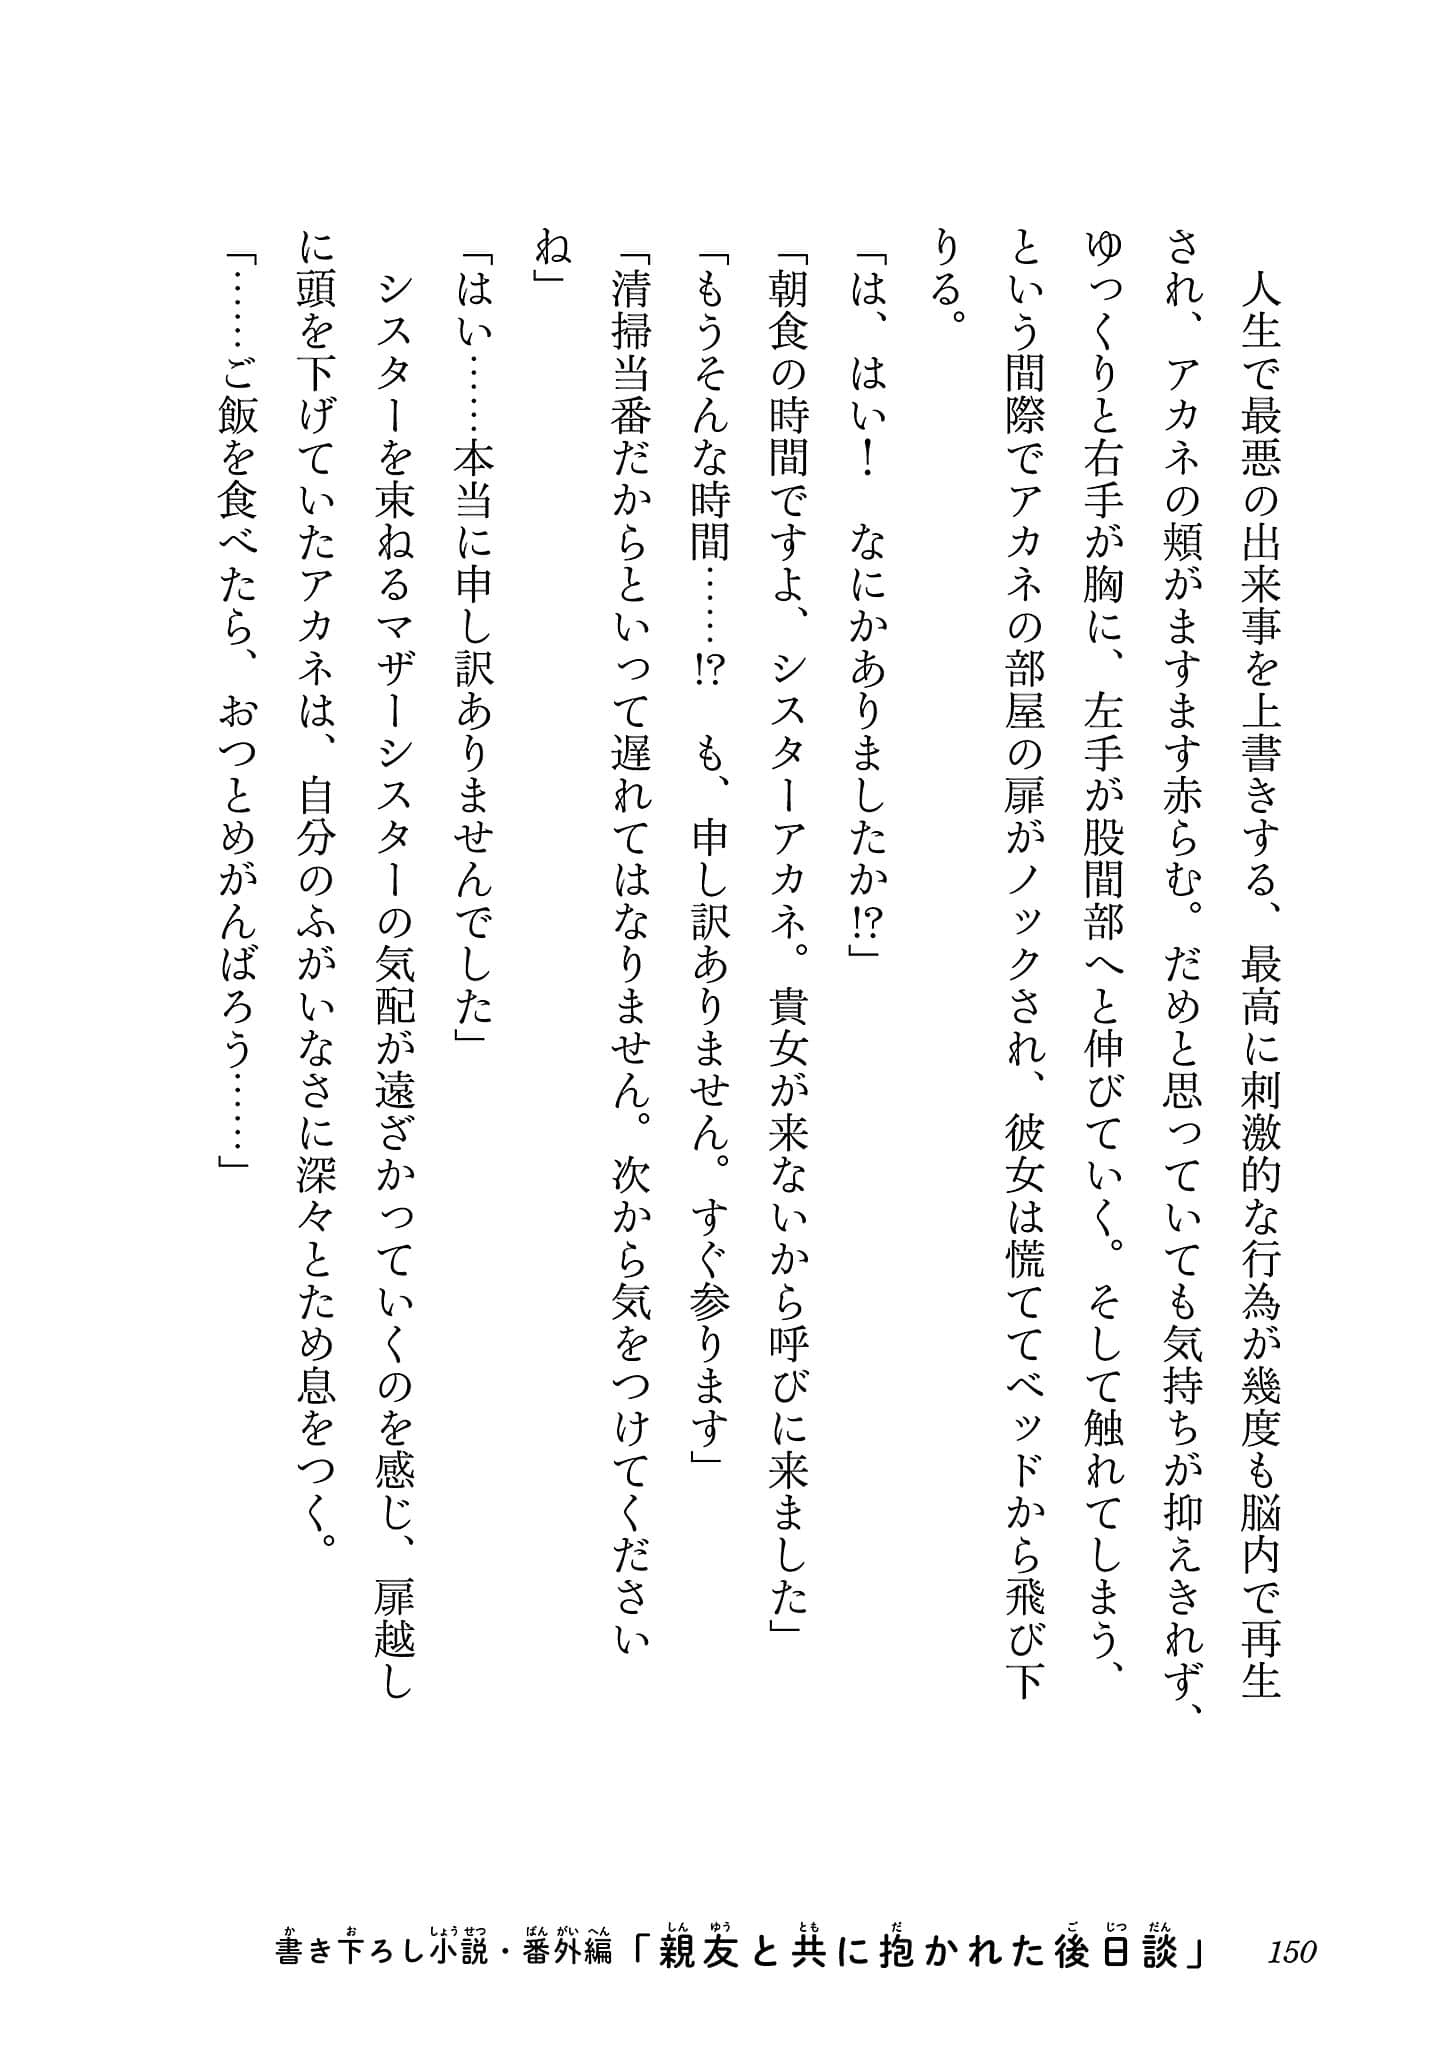 人生で最悪の出来事を上書きする、最高に刺激的な行為が幾度も脳内で再生
され、アカネの頬がますます赤らむ。だめと思っていても気持ちが抑えきれず、
ゆっくりと右手が胸に、左手が股間部へと伸びていく。そして触れてしまう、
という間際でアカネの部屋の扉がノックされ、彼女は慌ててベッドから飛び下
りる。
「は、はい！　なにかありましたか!?」
「朝食の時間ですよ、シスターアカネ。貴女が来ないから呼びに来ました」
「もうそんな時間……!?　も、申し訳ありません。すぐ参ります」
「清掃当番だからといって遅れてはなりません。次から気をつけてください
ね」
「はい……本当に申し訳ありませんでした」
シスターを束ねるマザーシスターの気配が遠ざかっていくのを感じ、扉越し
に頭を下げていたアカネは、自分のふがいなさに深々とため息をつく。
「……ご飯を食べたら、おつとめがんばろう……」
書き下ろし小説・番外編「親友と共に抱かれた後日談」
150